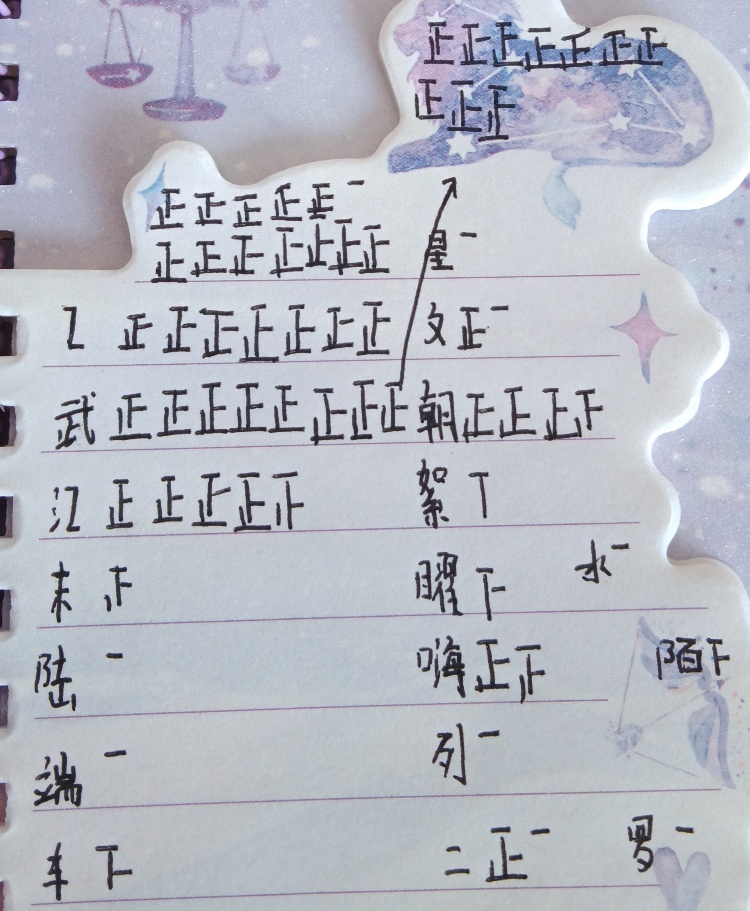 正正正正正正正
正正正
正正正正正一
正正正正正正正 星一
乙 正正正正正正正 文正一
武 正正正正正正正正 朝正正正𤴓
江 正正正正𤴓 絮丅
末 𤴓 曜下 水一
陆 一 嗨正𤴓 陌下
端 一 列一
车 下 二正一 罗一